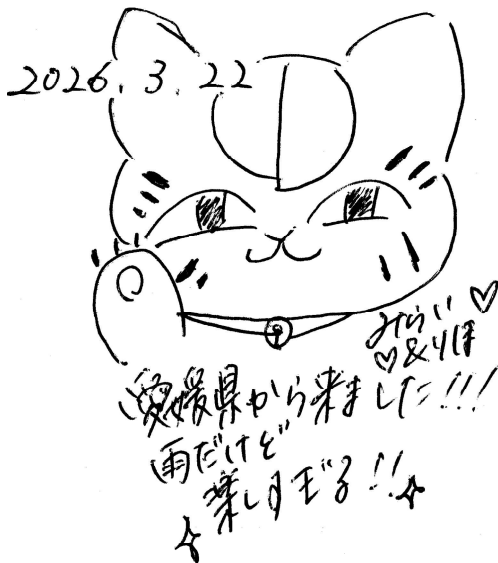 2026.3.22
みらい♡
♡&りほ
愛媛県から来ました!!!
雨だけど
楽しすぎる!!